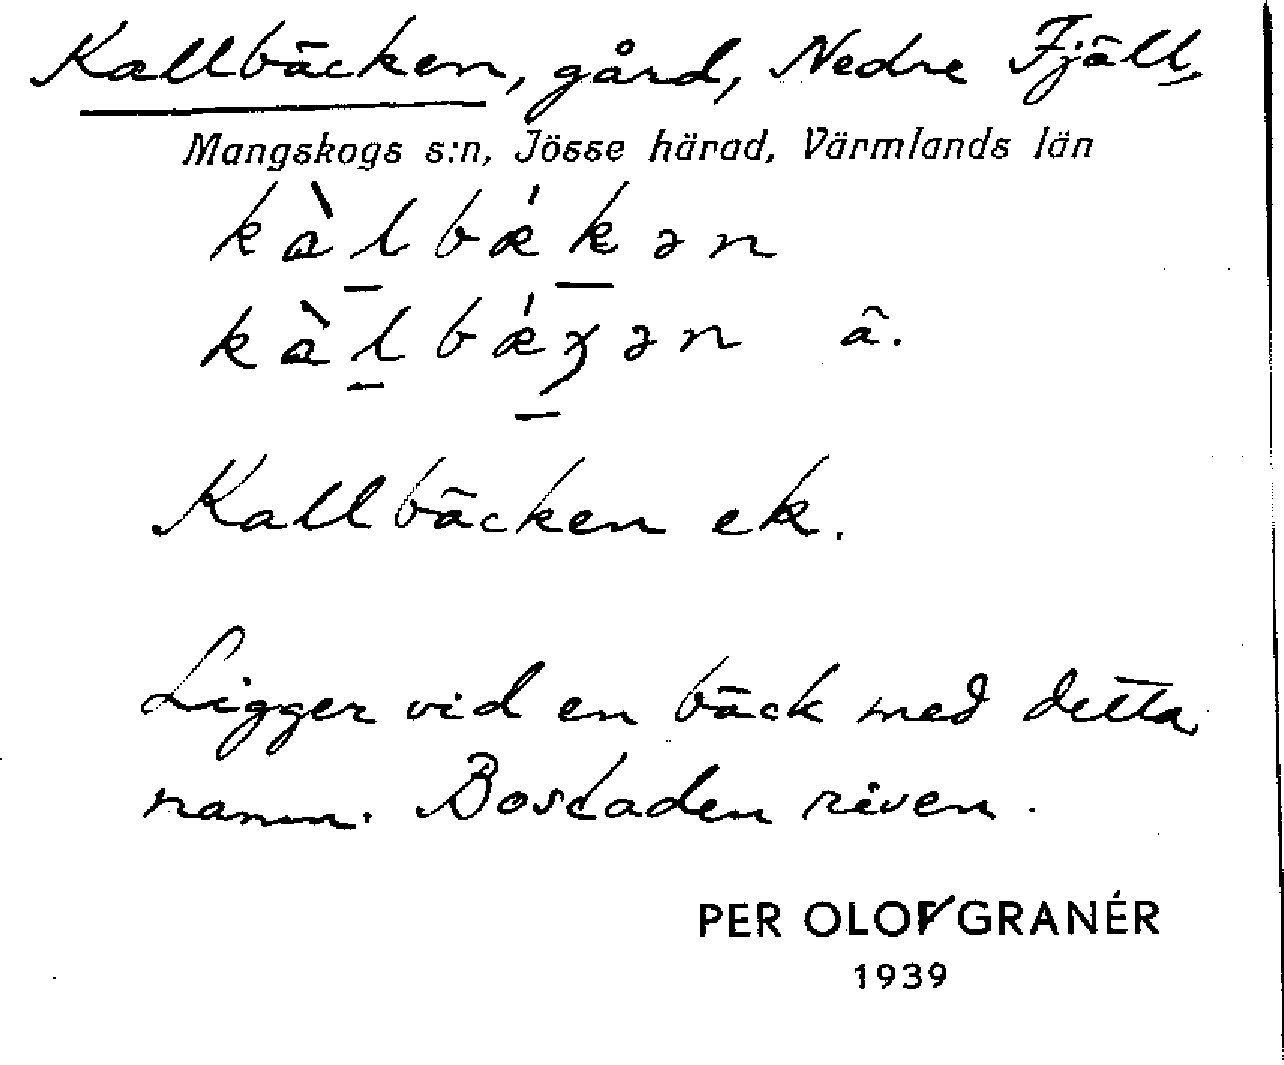 Kallbäcken, gård, Nedre Fjäll,
Mangskogs s:n, Jösse härad, Värmlands län
kàlbǽkən
kàlbǽχən ä.
Kallbäcken ek.
Ligger vid en bäck med detta
namn. Bostaden riven.
PER OLOF GRANÉR
1939